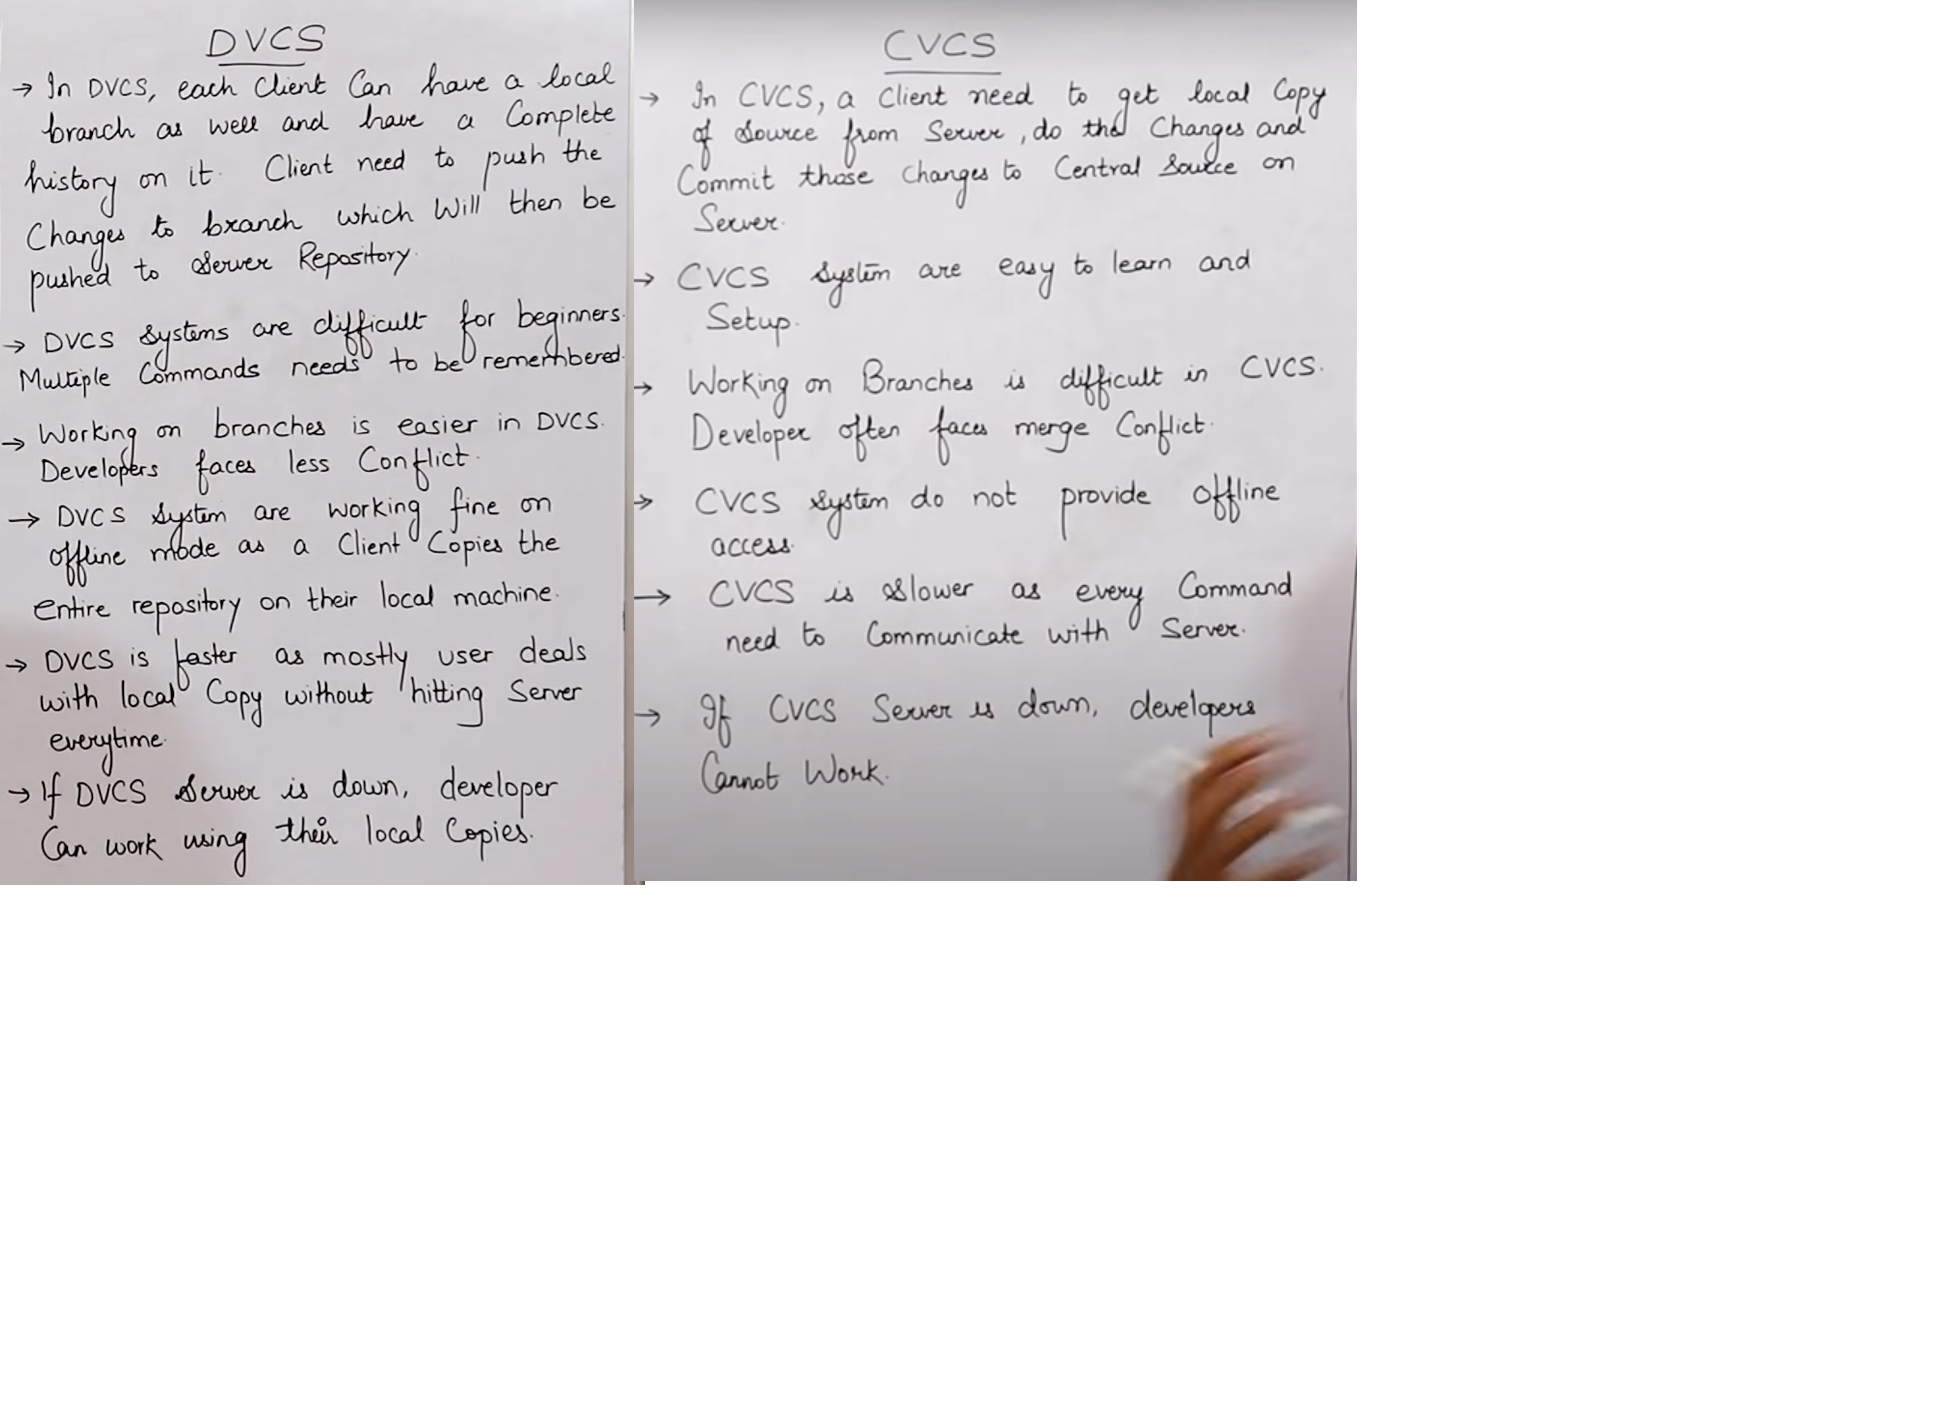 DVCS
→ In DVCS, each Client Can have a local
branch as well and have a Complete
history on it. Client need to push the
Changes to branch which Will then be
pushed to Server Repository.
→ DVCS Systems are difficult for beginners.
Multiple Commands needs to be remembered.
→ Working on branches is easier in DVCS.
Developers faces less Conflict.
→ DVCS System are working fine on
offline mode as a Client Copies the
entire repository on their local machine.
→ DVCS is faster as mostly user deals
with local Copy without hitting Server
everytime.
→ If DVCS Server is down, developer
Can work using their local Copies.
CVCS
→ In CVCS, a Client need to get local Copy
of Source from Server, do the Changes and
Commit those Changes to Central Source on
Server.
→ CVCS System are easy to learn and
Setup.
→ Working on Branches is difficult in CVCS.
Developer often faces merge Conflict.
→ CVCS System do not provide offline
access.
→ CVCS is Slower as every Command
need to Communicate with Server.
→ If CVCS Server is down, developers
Cannot Work.